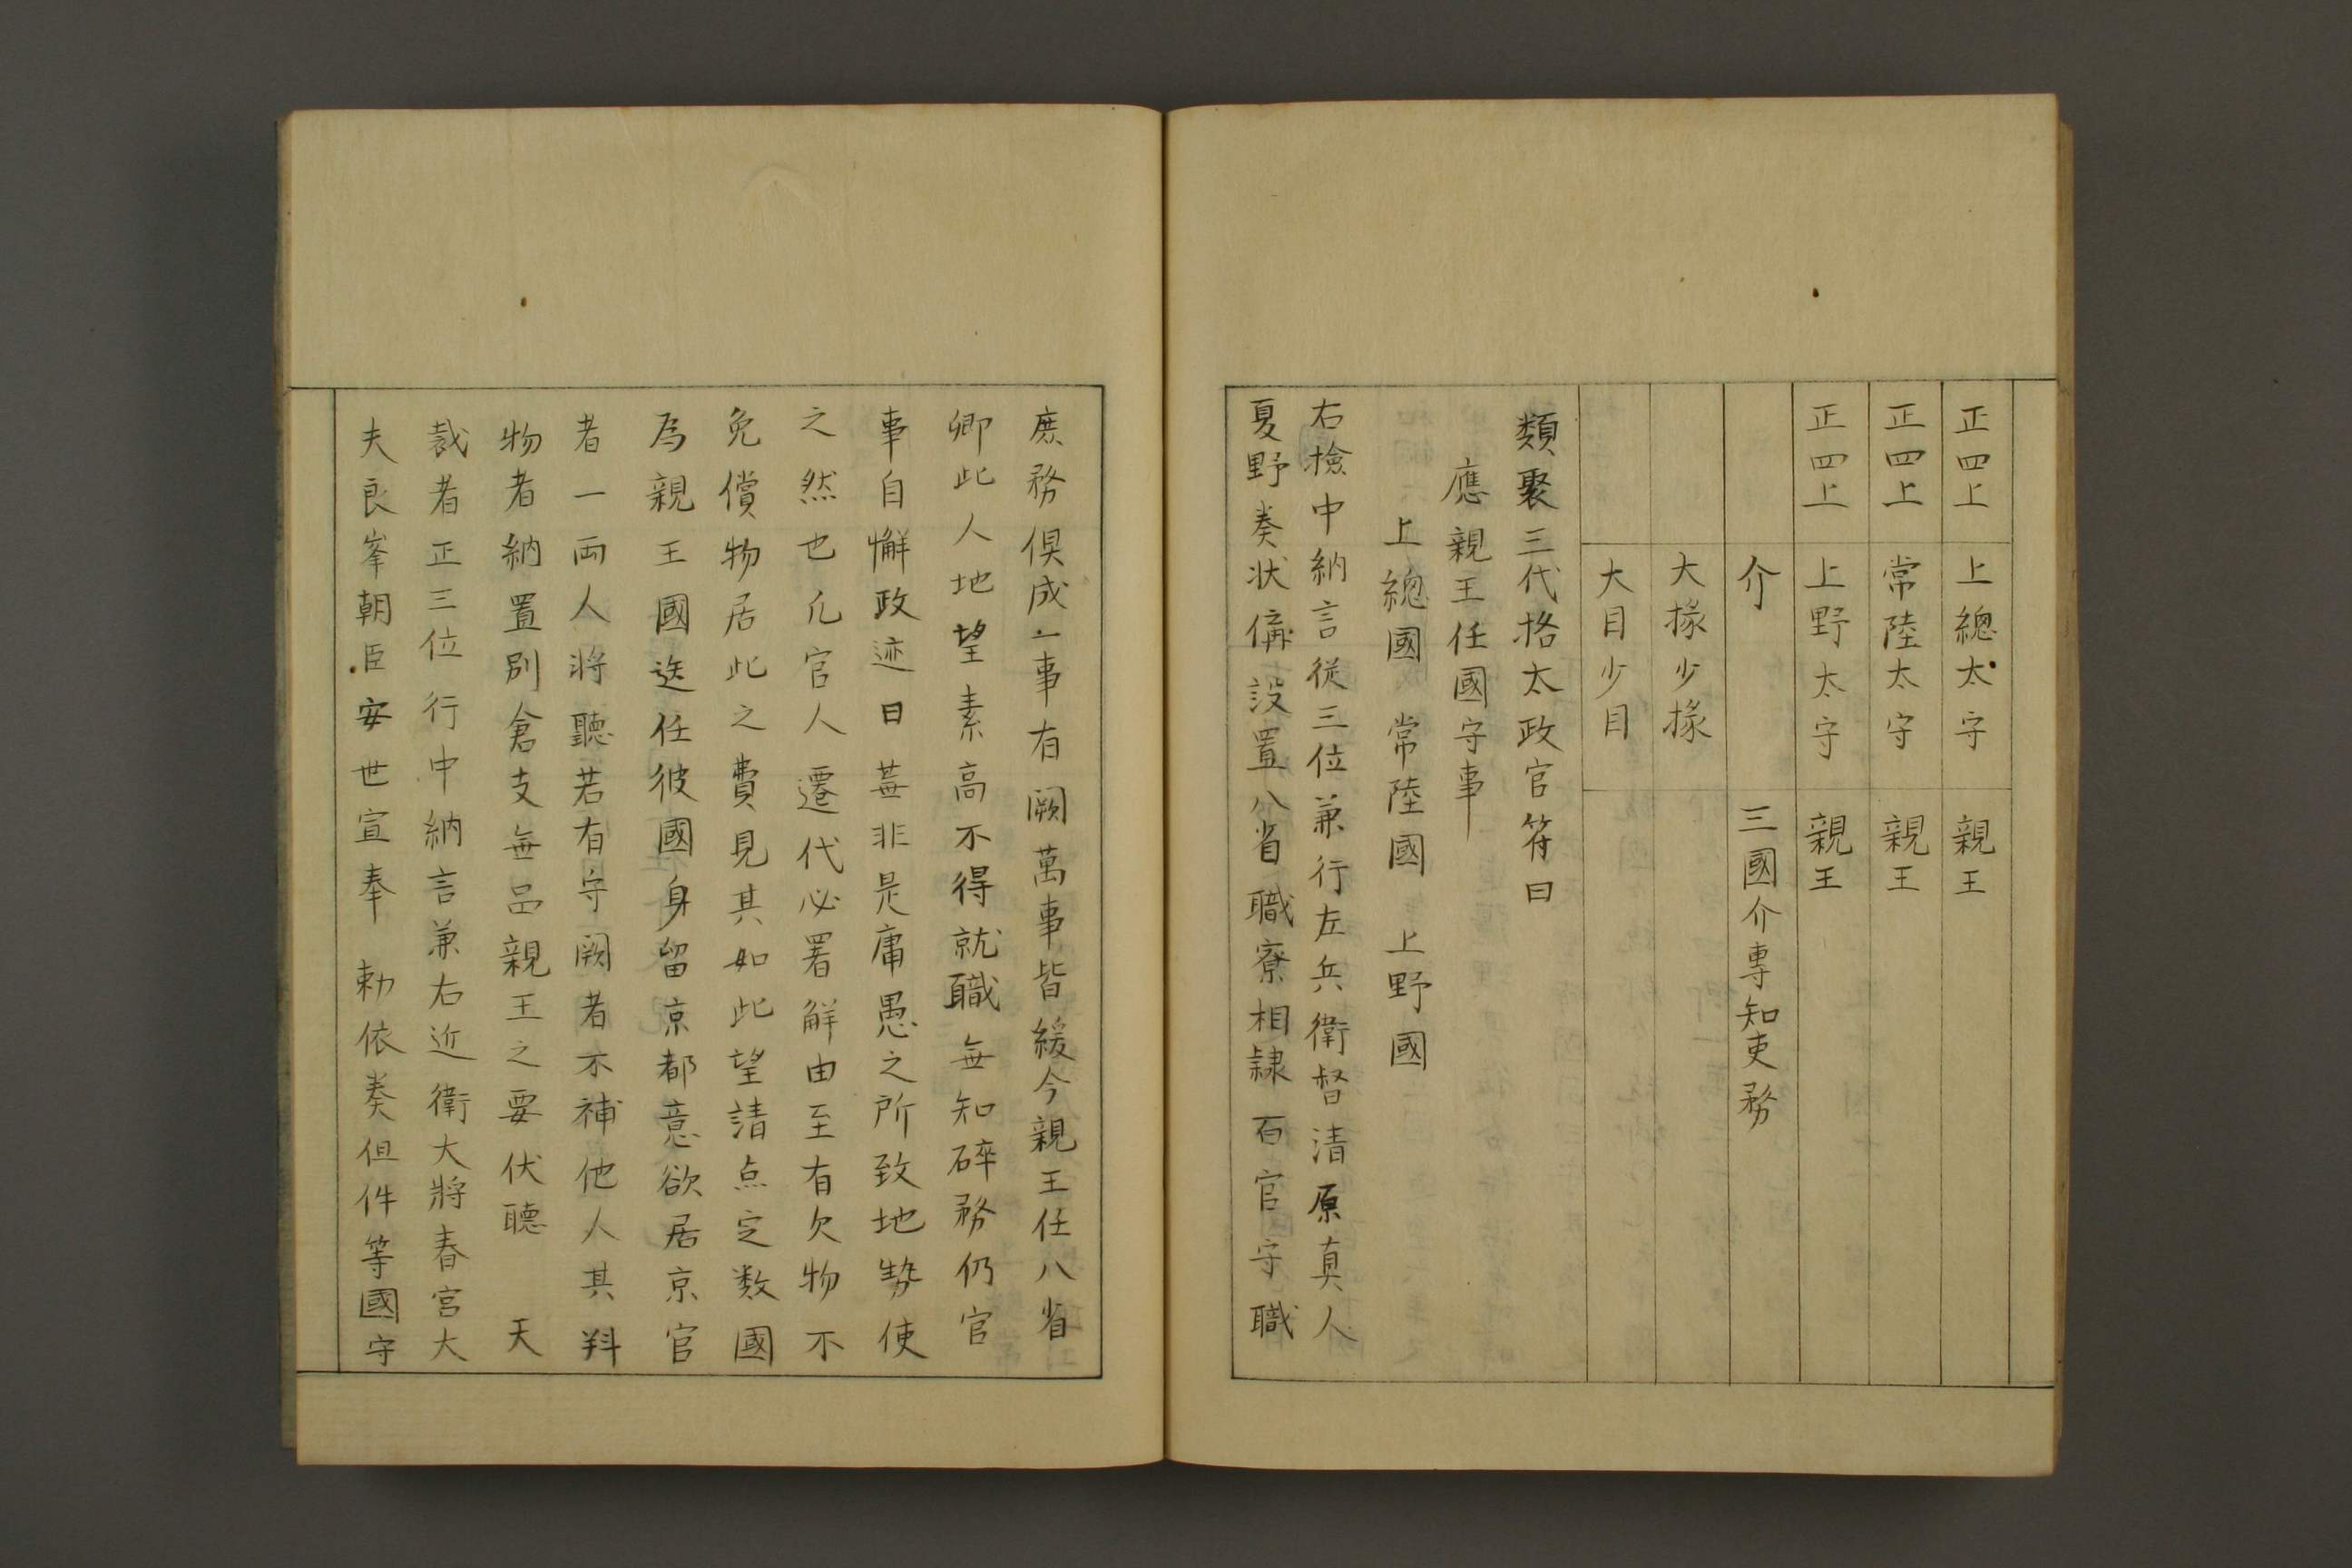 正四上 上總太守 親王
正四上 常陸太守 親王
正四上 上野太守 親王
介 三國介專知吏務
大掾少掾
大目少目
類聚三代格太政官符曰
應親王任國守事
上總國 常陸國 上野國
右檢中納言從三位兼行左兵衛督清原真人
夏野奏状偁設置八省職寮相隷百官守職
庶務倶成一事有闕萬事皆緩今親王任八省
卿此人地望素高不得就職無知碎務仍官
事自懈政迹日蕪非是庸愚之所致地勢使
之然也凡官人遷代必署解由至有欠物不
免償物居此之費見其如此望請点定数國
為親王國迭任彼國身留京都意欲居京官
者一両人将聴若有守闕者不補他人其料
物者納置別倉支無品親王之要伏聴 天
裁者正三位行中納言兼右近衛大將春宮大
夫良峯朝臣安世宣奉 勅依奏但件等國守